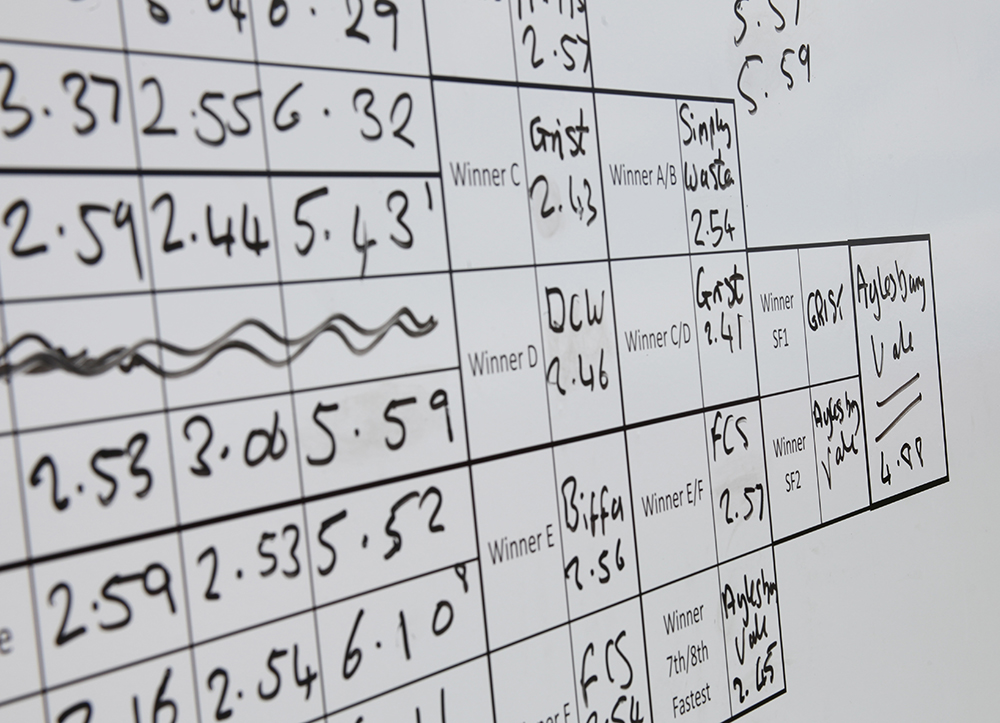 29
2.57
5.59
3.37 2.55 6.32
Winner C
Grist
2.43
Winner A/B
Simply
Waste
2.54
2.59 2.44 5.43
Winner D
DCW
2.46
Winner C/D
Grist
2.41
Winner
SF1
GRIST
Aylesbury
Vale
2.53 3.06 5.59
Winner E
Biffa
2.56
Winner E/F
FCS
2.57
Winner
SF2
Aylesbury
Vale
2.59 2.53 5.52
e
2.54 6.10
FCS
2.54
Winner
7th/8th
Fastest
Aylesbury
Vale
2.45